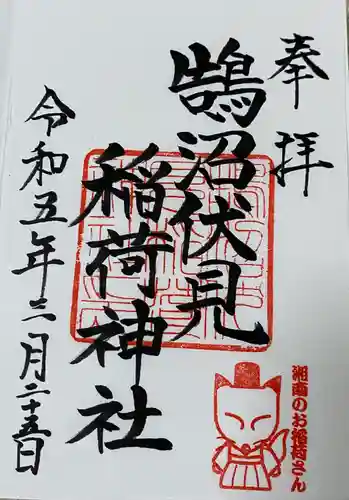 奉拝
鵠沼伏見
稲荷神社
令和五年三月二十五日
湘南のお稲荷さん